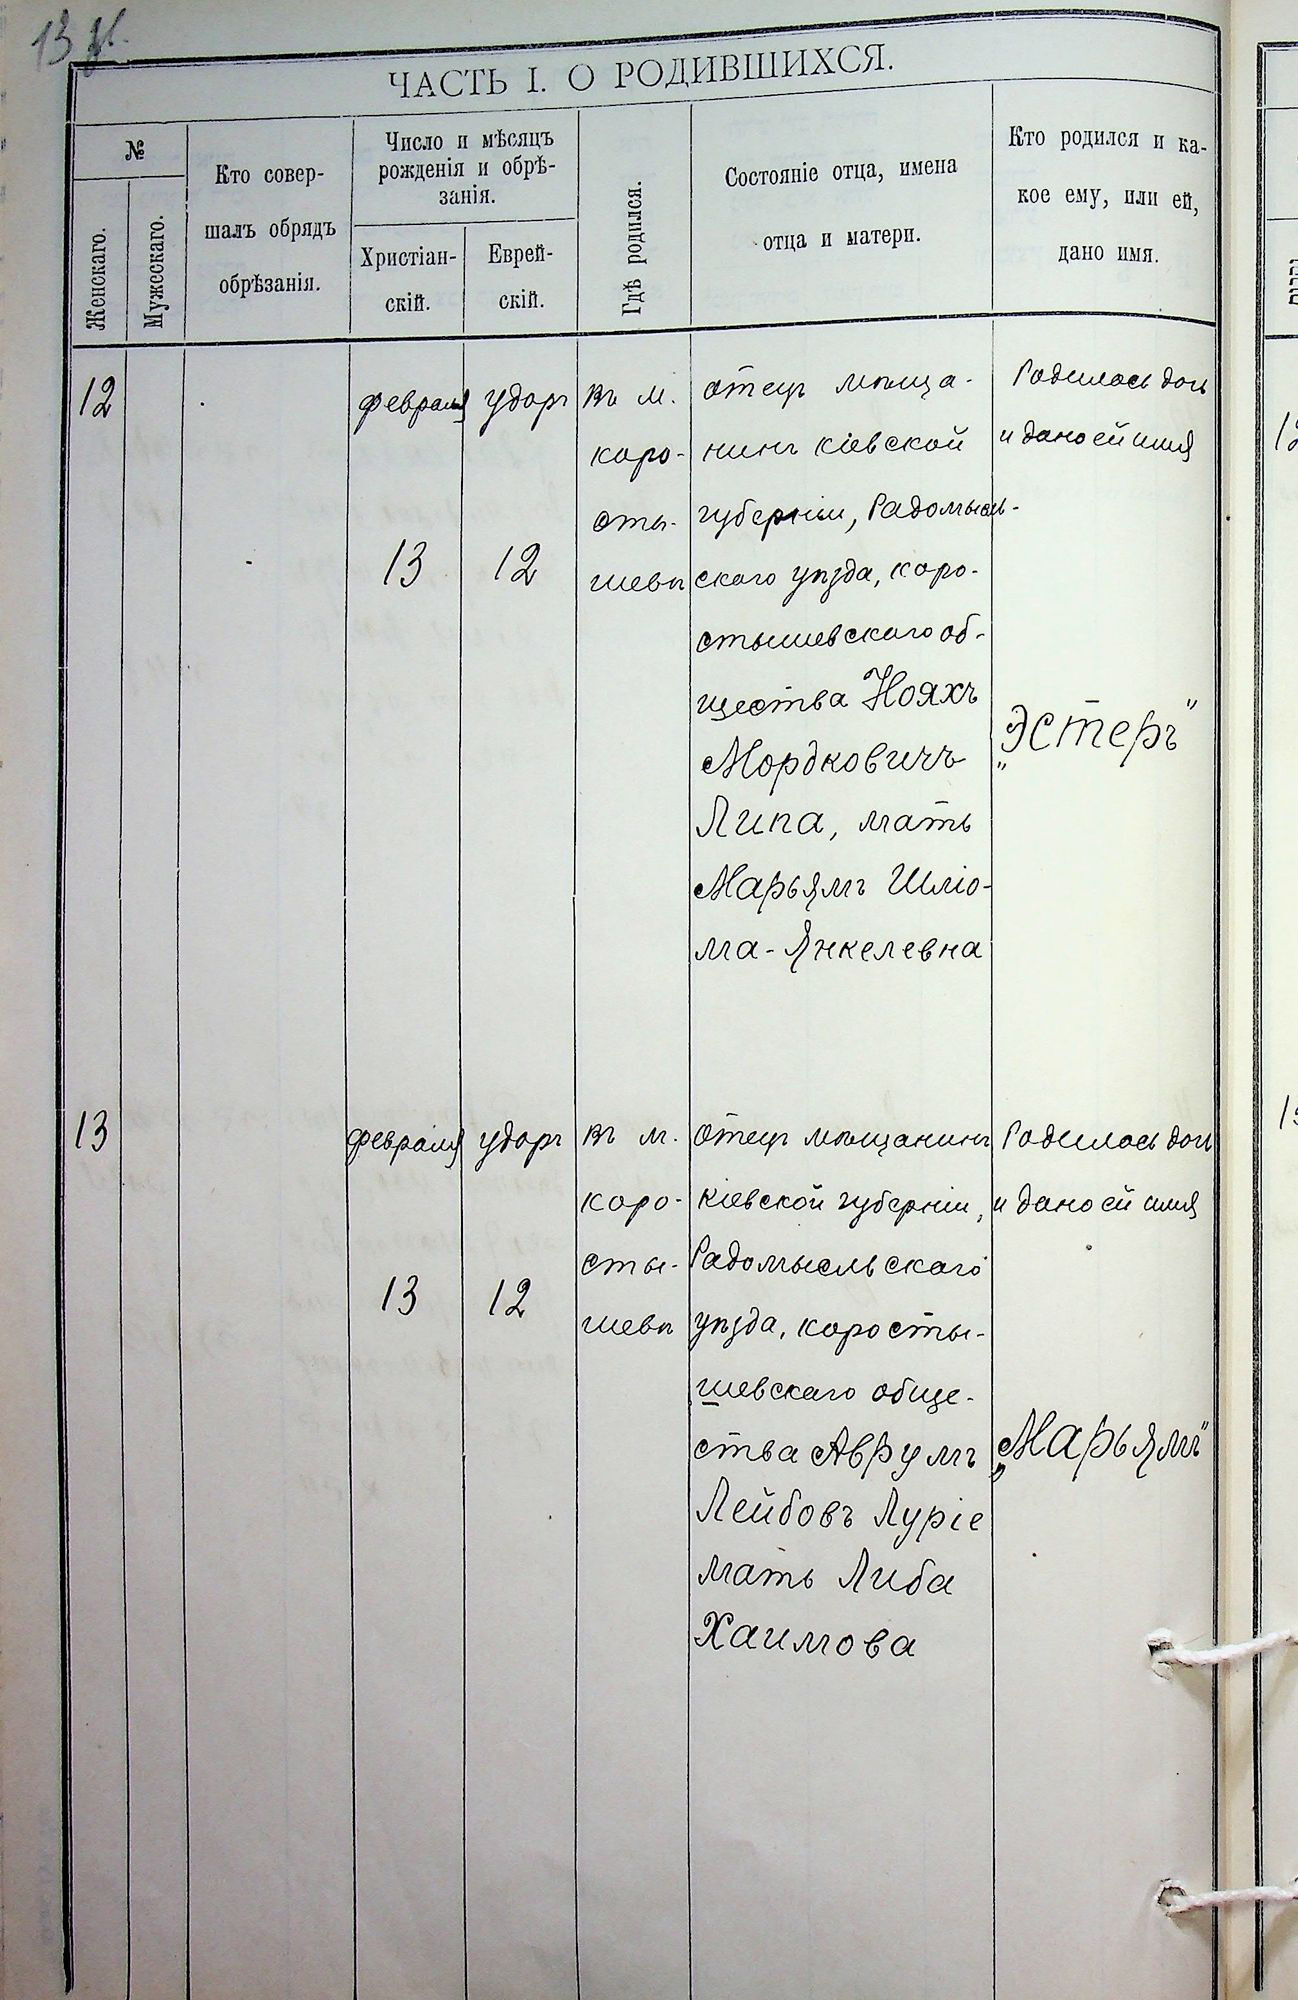 ЧАСТЬ I. О РОДИВШИХСЯ.
№
Женскаго.
Мужескаго.
Кто совер-
шалъ обрядъ
обрѣзанія.
Число и мѣсяцъ
рожденія и обрѣ-
занія.
Христіан-
скій.
Еврей-
скій.
Гдѣ родился.
Состояніе отца, имена
отца и матери.
Кто родился и ка-
кое ему, или ей,
дано имя.
12
февраля
13
удоръ
12
Въ м.
коро-
сты-
шевѣ
отецъ мѣща-
нинъ кіевской
губерніи, Радомысль-
скаго уѣзда, коро-
стышевскаго об-
щества Нояхъ
Мордковичъ
Липа, мать
Марьямъ Шліо-
ма-Янкелевна
Родилась дочь
и дано ей имя
„Эстеръ"
13
февраля
13
удоръ
12
Въ м.
коро-
сты-
шевѣ
отецъ мѣщанинъ
кіевской губерніи,
Радомысльскаго
уѣзда, коросты-
шевскаго обще-
ства Аврумъ
Лейбовъ Луріе
мать Либа
Хаимова
Родилась дочь
и дано ей имя
„Марьямъ"